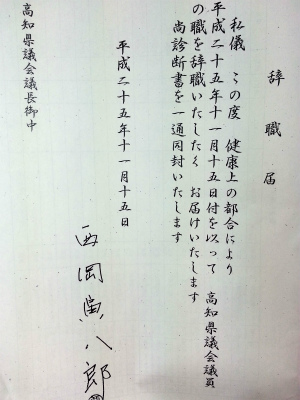 辞職届
私儀 この度 健康上の都合により
平成二十五年十一月十五日付を以って 高知県議会議員
の職を辞職いたしたく お届けいたします
尚診断書を一通同封いたします
平成二十五年十一月十五日
西岡寅八郎
高知県議会議長御中